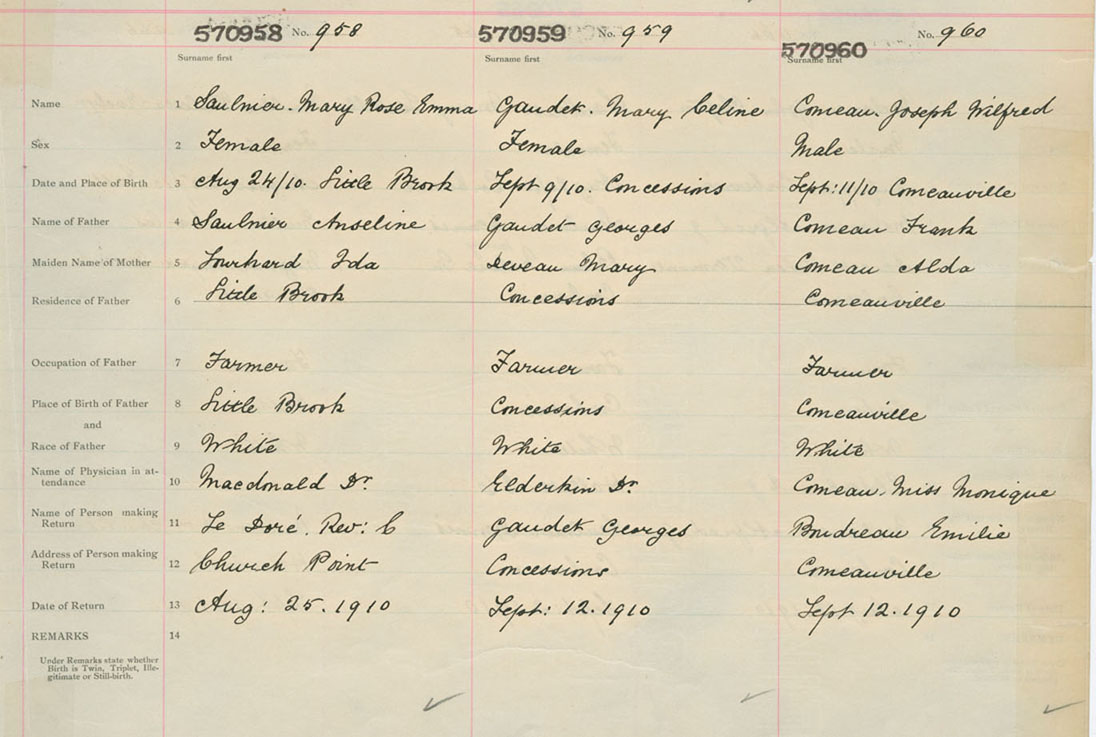 570958 No. 958 570959 No. 959 570960 No. 960
Surname first Surname first Surname first
Name 1 Saulnier. Mary Rose Emma Gaudet. Mary Celine Comeau. Joseph Wilfred
Sex 2 Female Female Male
Date and Place of Birth 3 Aug 24/10. Little Brook Sept 9/10. Concessions Sept: 11/10 Comeauville
Name of Father 4 Saulnier Anseline Gaudet Georges Comeau Frank
Maiden Name of Mother 5 Ida Deveau Mary Comeau Alda
Residence of Father 6 Little Brook Concessions Comeauville
Occupation of Father 7 Farmer Farmer Farmer
Place of Birth of Father 8 Little Brook Concessions Comeauville
and
Race of Father 9 White White White
Name of Physician in at-
tendance 10 Macdonald Dr. Elderkin Dr. Comeau. Miss Monique
Name of Person making
Return 11 Le Doré. Rev: C Gaudet Georges Boudreau Emilie
Address of Person making
Return 12 Church Point Concessions Comeauville
Date of Return 13 Aug: 25. 1910 Sept: 12. 1910 Sept 12. 1910
REMARKS 14
Under Remarks state whether
Birth is Twin, Triplet, Ille-
gitimate or Still-birth.